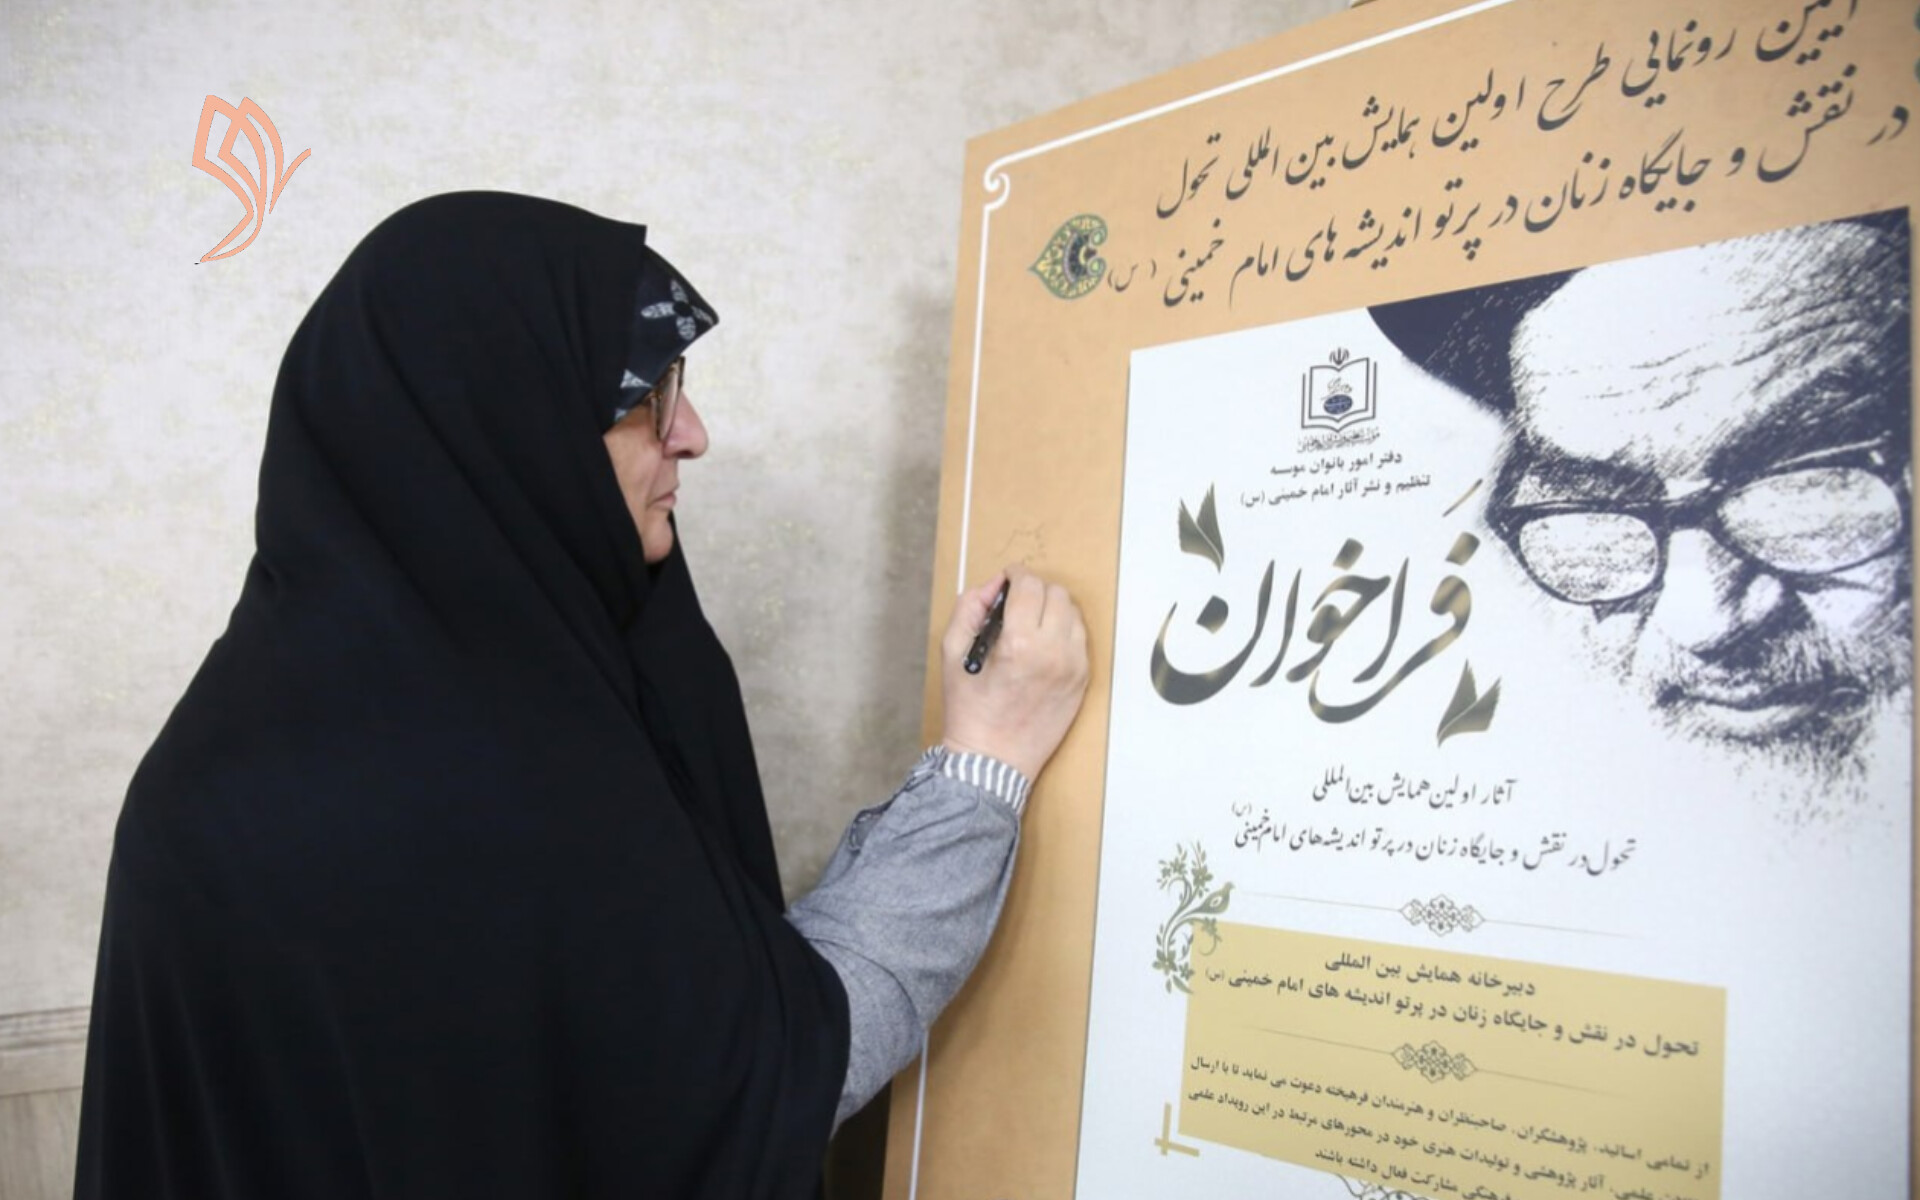 آیین رونمایی طرح اولین همایش بین المللی تحول
در نقش و جایگاه زنان در پرتو اندیشه های امام خمینی (س)
دفتر امور بانوان موسسه
تنظیم و نشر آثار امام خمینی (س)
فَراخوان
آثار اولین همایش بین‌المللی
تحول در نقش و جایگاه زنان در پرتو اندیشه‌های امام خمینی (س)
دبیرخانه همایش بین المللی
تحول در نقش و جایگاه زنان در پرتو اندیشه های امام خمینی (س)
از تمامی اساتید، پژوهشگران، صاحبنظران و هنرمندان فرهیخته دعوت می نماید تا با ارسال
علمی، آثار پژوهشی و تولیدات هنری خود در محورهای مرتبط در این رویداد علمی
فرهنگی مشارکت فعال داشته باشند